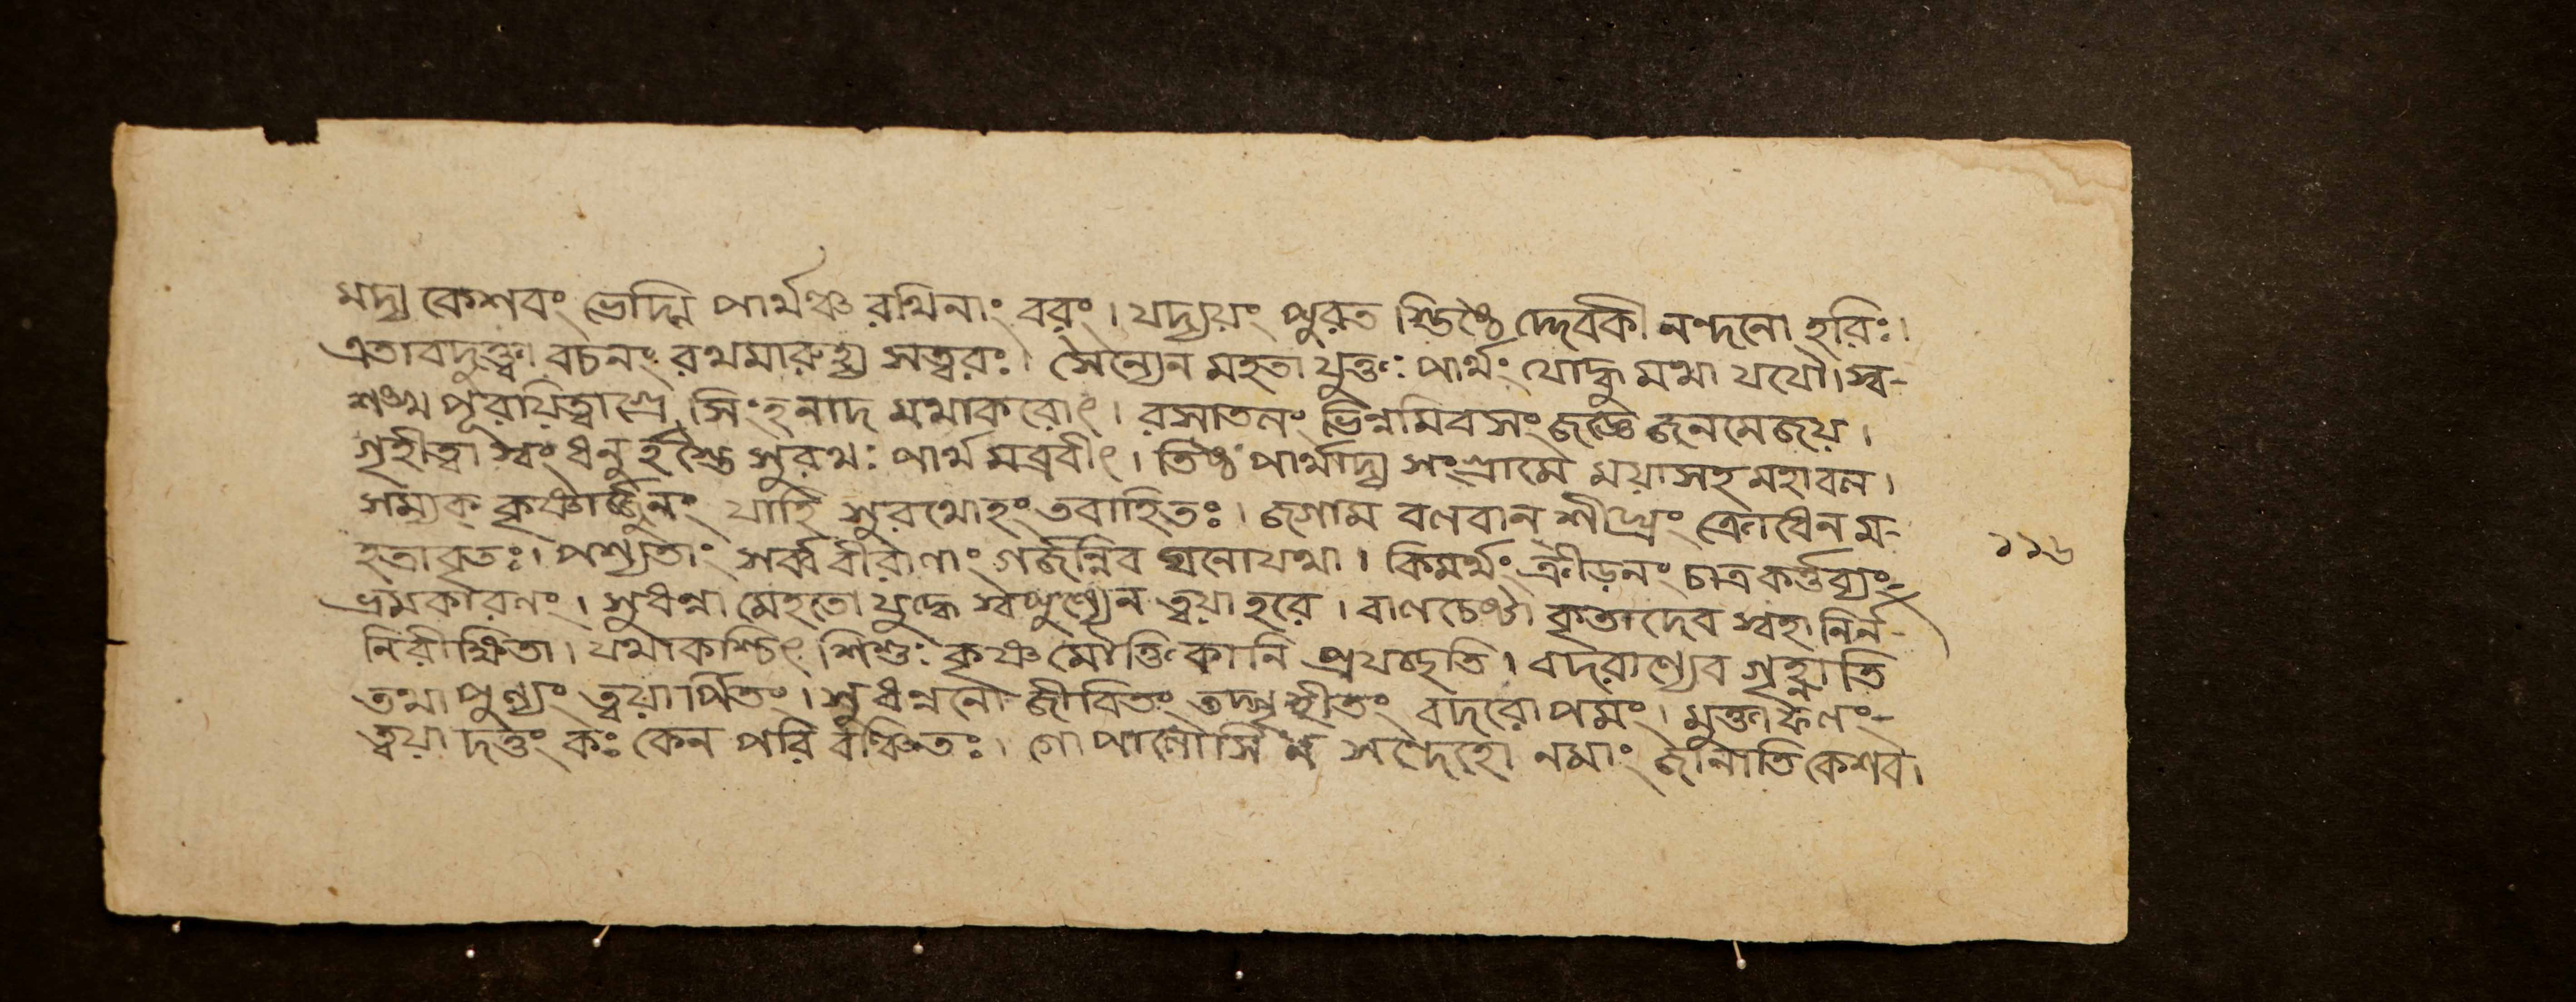 মদ্য কেশবং ভেদ্মি পার্থঞ্চ রথিনাং বরং। যদ্যয়ং পুরত স্তিষ্ঠে দ্দেবকী নন্দনো হরিঃ।
এতাবদুক্ত্বা বচনং রথমারুহ্য সত্বরঃ। সৈন্যেন মহতা যুক্তঃ পার্থং যোদ্ধু মথা যযৌ। স্ব-
শঙ্খ পূরয়িত্বাগ্রে সিংহনাদ মথাকরোৎ। রসাতলং ভিন্নমিবসং জজ্ঞে জনমেজয়।
গৃহীত্বা স্বং ধনুর্হস্তে সুরথঃ পার্থ মব্রবীৎ। তিষ্ঠ পার্থাদ্য সংগ্রামে ময়াসহ মহাবল।
সম্যক্ কৃষ্ণার্জ্জুনং যাহি সুরথোহং তবাহিতঃ। জগাম বলবান্ শীঘ্রং ক্রোধেন ম-
হতাবৃতঃ। পশ্যতাং সর্ব্ববীরাণাং গর্জন্নিব ঘনোযথা। কিমর্থং ক্রীড়নং চাত্র কর্ত্তব্যং-
ভ্রমকারণং। সুধন্বা মেহতো যুদ্ধে স্বপুণ্যেন ত্বয়া হরে। বালচেষ্টা কৃতাদেব স্বহা নির্ন-
নিরীক্ষিতা। যথাকশ্চিৎ শিশুঃ কৃষ্ণ মৌক্তিকানি প্রযচ্ছতি। বদরাণ্যেব গৃহ্ণাতি
তথা পুণ্যং ত্বয়ার্পিতং। সুধন্বনো জীবিতং তদ্গৃহীতং বদরোপমং। মুক্তাফলং-
ত্বয়া দত্তং কঃ কেন পরি বঞ্চিতঃ। গোপালোসি ন সন্দেহো নমাং জানাতি কেশব।
১১৬